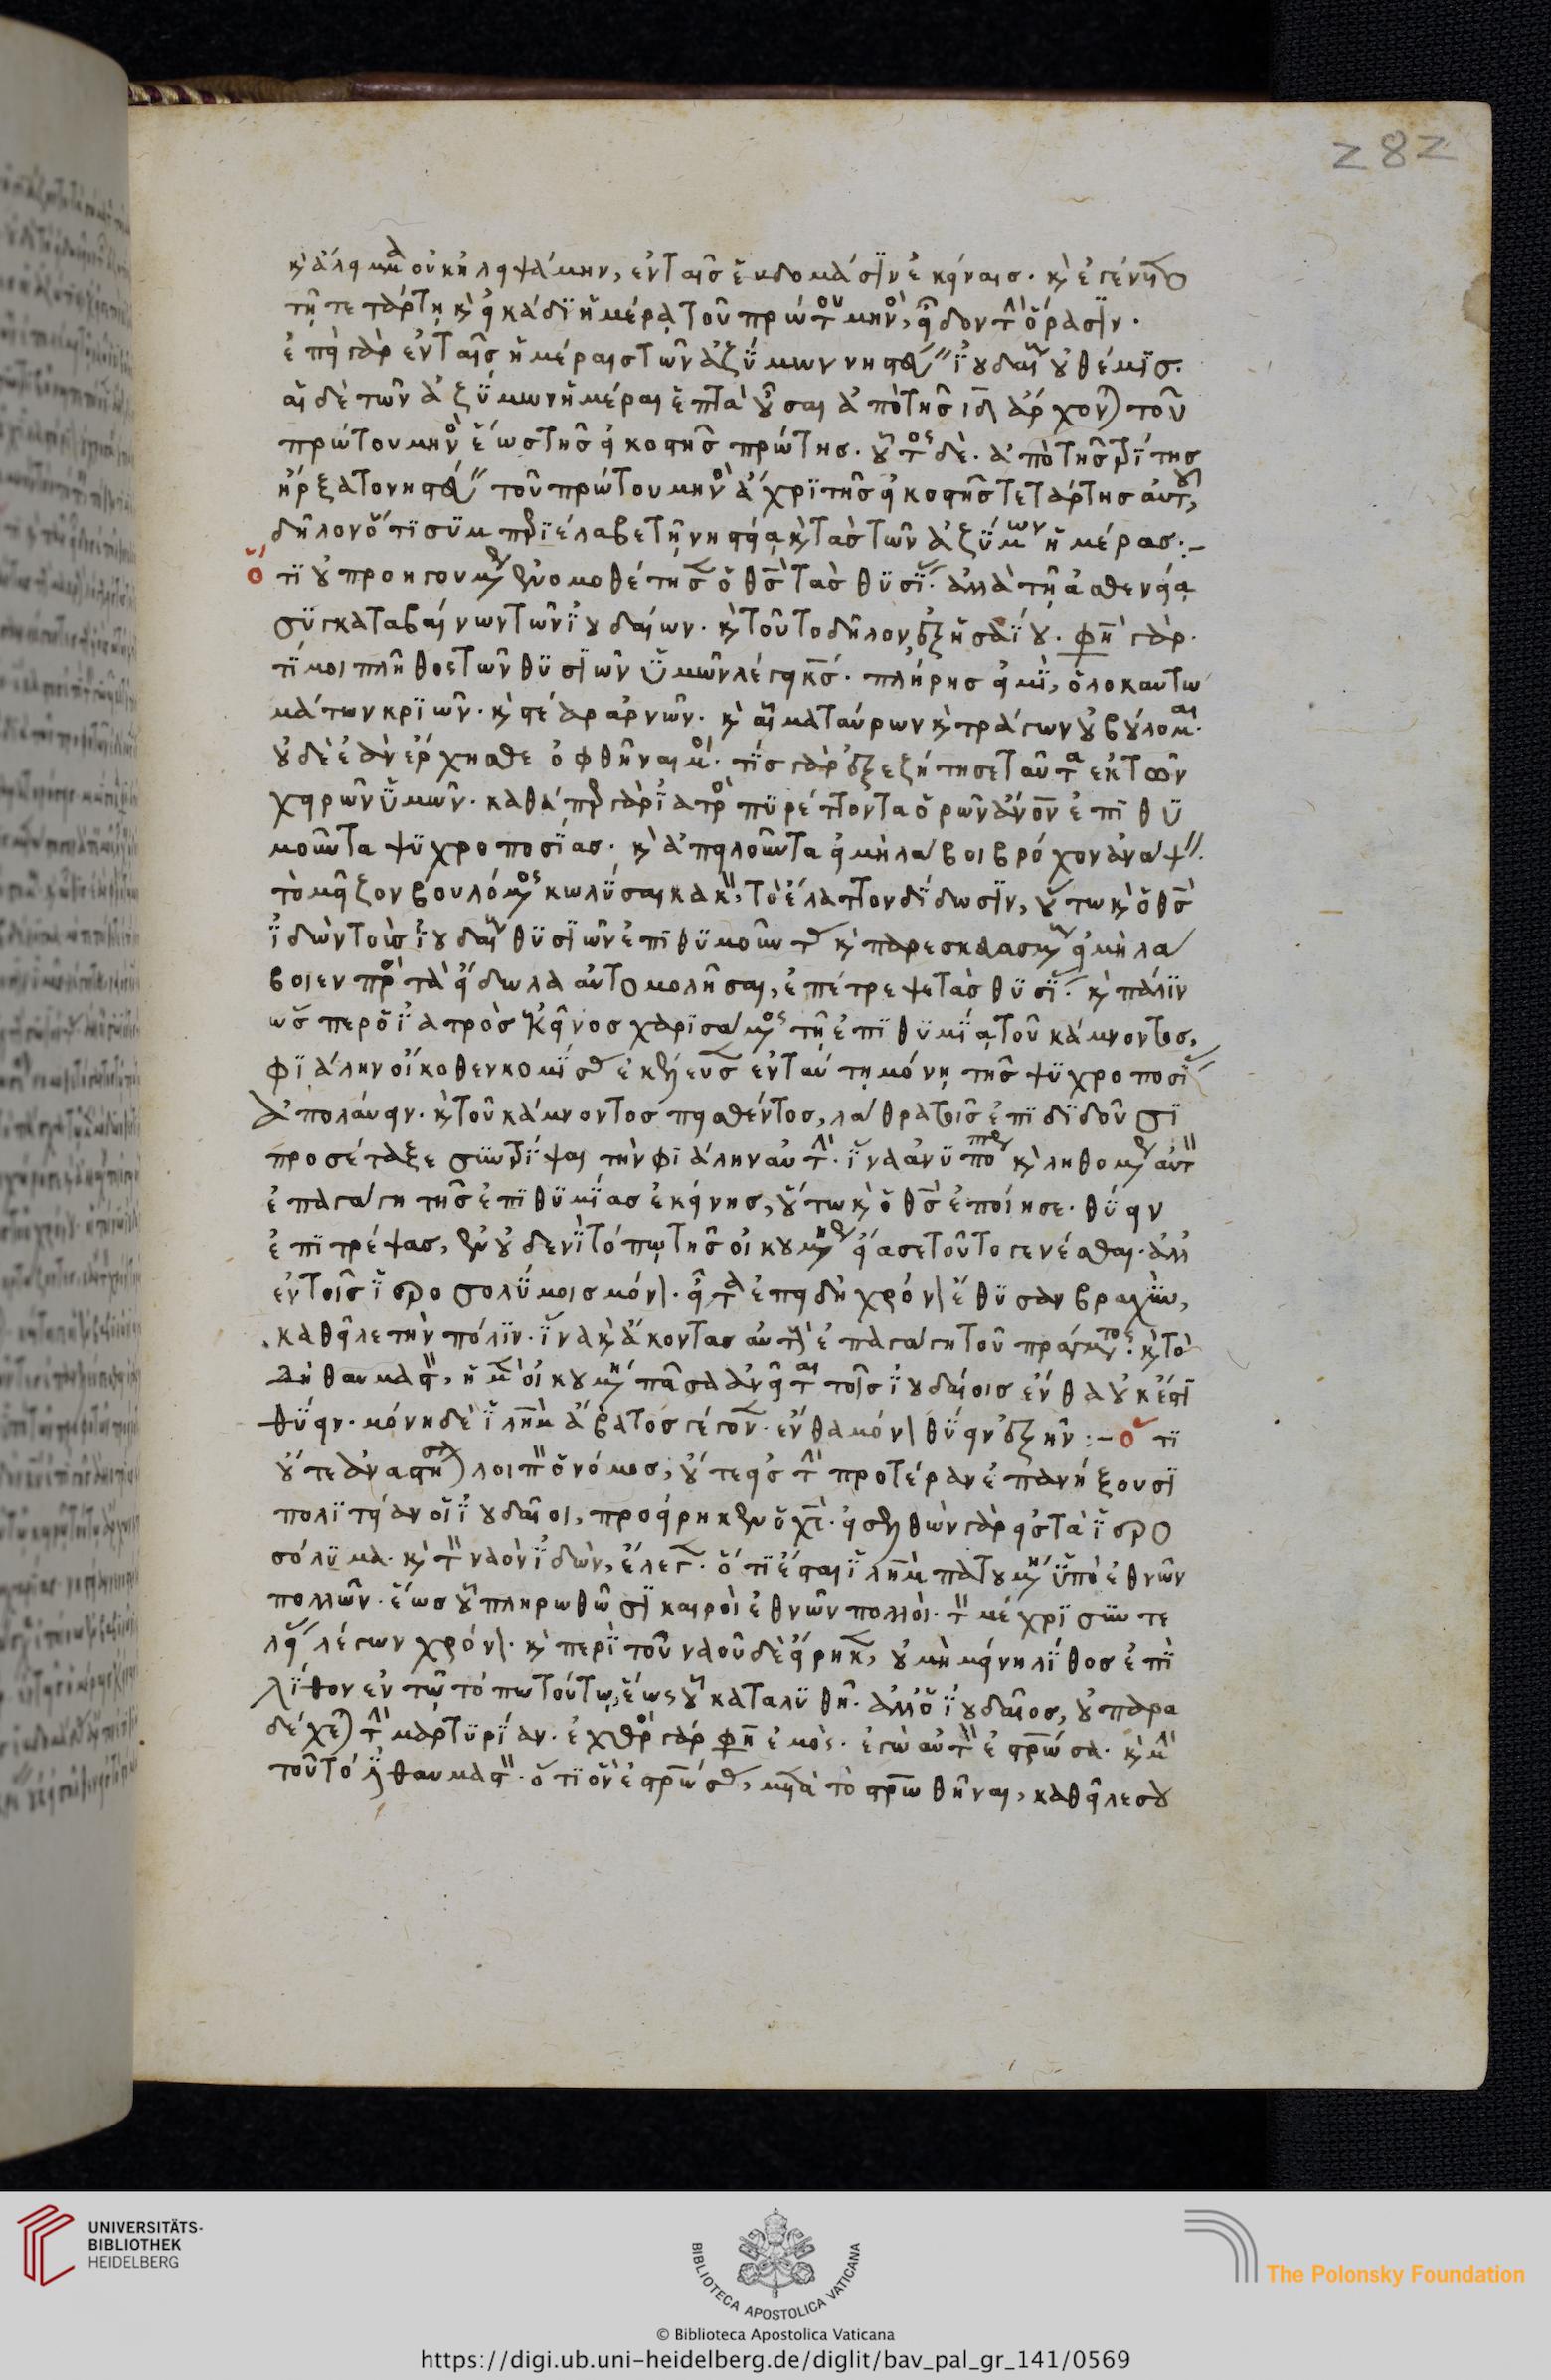 282
κ ἄλειμμα οὐκ ἠλειψάμην, ἐν ταῖς ἑβδομάσϊν ἐκείναις. κ ἐγένετο
τῆ τετάρτη κ εἰκάδϊ ἡμέρα τοῦ πρώτου μηνὸς, εἶδον τὴν ὅρασϊν.
ἐπεὶ γὰρ ἐν ταῖς ἡμέραις τῶν ἀζύμων νηστεύειν ἰουδαίοις οὐ θέμϊς.
αἱ δὲ τῶν ἀζύμων ἡμέραι ἑπτὰ οὖσαι ἀπὸ τῆς ιδ ἄρχονται τοῦ
πρώτου μηνὸς ἕως τῆς εἰκοστῆς πρώτης. οὗτος δὲ ἀπὸ τῆς τρίτης
ἤρξατο νηστεύειν τοῦ πρώτου μηνὸς ἄχρϊ τῆς εἰκοστῆς τετάρτης αὐτοῦ,
δῆλον ὅτϊ συμπεριέλαβε τῆ νηστεία κ τὰς τῶν ἀζύμων ἡμέρας.
ὅτϊ οὐ προηγουμένως ἐνομοθέτησεν ὁ θς τὰς θυσίας. ἀλλὰ τῆ ἀσθενεία
συγκαταβαίνων τῶν ἰουδαίων. κ τοῦτο δῆλον ἐξ ἡσαΐου. φησὶ γάρ.
τί μοι πλῆθος τῶν θυσϊῶν ὑμῶν λέγει κς. πλήρης εἰμϊ, ὁλοκαυτω
μάτων κρϊῶν. κ στέαρ ἀρνῶν. κ αἷμα ταύρων κ τράγων οὐ βούλομαι.
οὐδὲ ἐὰν ἔρχησθε ὀφθῆναι μοι. τίς γὰρ ἐξεζήτησε ταῦτα ἐκ τῶν
χειρῶν ὑμῶν. καθάπερ γὰρ ἰατρὸς πυρέττοντα ὁρῶν ἄνον ἐπϊθυ
μοῦντα ψυχροποσίας. κ ἀπειλοῦντα εἰ μὴ λάβοι βρόχον ἀνάψειν.
τὸ μεῖζον βουλόμενος κωλῦσαι κακὸν, τὸ ἔλαττον δίδωσϊν, οὕτω κ ὁ θς
ἰδὼν τοὺς ἰουδαίους θυσϊῶν ἐπϊθυμοῦντας κ παρεσκευασμένους εἰ μὴ λά
βοιεν πρὸς τὰ εἴδωλα αὐτομολῆσαι, ἐπέτρεψε τὰς θυσίας. κ πάλϊν
ὥσπερ ὁ ἰατρὸς ἐκεῖνος χαρϊσάμενος τῆ ἐπϊθυμία τοῦ κάμνοντος,
φϊάλην οἴκοθεν κομίσας ἐκέλευσεν ἐν ταύτη μόνη τῆς ψυχροποσίας
ἀπολαύειν. κ τοῦ κάμνοντος πεισθέντος, λάθρα τοῖς ἐπϊδϊδοῦσϊ
προσέταξε συντρίψαι τὴν φϊάλην αὐτὴν. ἵνα ἀνυπόπτως κ λεληθότως αὐτὸν
ἐπαγάγη τῆς ἐπϊθυμίας ἐκείνης, οὕτω κ ὁ θς ἐποίησε. θύειν
ἐπϊτρέψας, ἐν οὐδενὶ τόπω τῆς οἰκουμένης εἴασε τοῦτο γενέσθαι. ἀλλ
ἐν τοῖς ἱεροσολύμοις μόνον. εἶτα ἐπειδὴ χρόνον ἔθυσαν βραχὺν,
καθεῖλε τὴν πόλϊν. ἵνα κ ἄκοντας αὐτοὺς ἐπαγάγη τοῦ πράγματος. κ τὸ
δὴ θαυμαστὸν, ἡ μὲν οἰκουμένη πᾶσα ἀνεῖται τοῖς ἰουδαίοις ἔνθα οὐκ ἔστϊ
θύειν. μόνη δὲ ἱλημ ἄβατος γέγονεν. ἔνθα μόνον θύειν ἐξῆν :- ὅτϊ
οὔτε ἀναστήσεται λοιπὸν ὁ νόμος, οὔτε εἰς τὴν προτέραν ἐπανήξουσϊ
πολϊτείαν οἱ ἰουδαῖοι, προείρηκεν ὁ χς. εἰσελθὼν γὰρ εἰς τὰ ἱερο
σόλυμα. κ τὸν ναὸν ἰδὼν, ἔλεγεν. ὅτϊ ἔσται ἱλημ πατουμένη ὑπὸ ἐθνῶν
πολλῶν. ἕως οὗ πληρωθῶσϊ καιροὶ ἐθνῶν πολλοὶ. τὸν μέχρϊ συντε
λείας λέγων χρόνον. κ περὶ τοῦ ναοῦ δὲ εἴρηκεν, οὐ μὴ μείνη λίθος ἐπὶ
λίθον ἐν τῶ τόπω τούτω, ἕως οὗ καταλυθῆ. ἀλλ ὁ ἰουδαῖος, οὐ παρα
δέχεται τὴν μαρτυρίαν. ἐχθρὸς γάρ φησὶν ἐμὸς. ἐγὼ αὐτὸν ἐσταύρωσα. κ μὴν
τοῦτό ἐστι θαυμαστὸν. ὅτϊ ὃν ἐσταύρωσας, μετὰ τὸ σταυρωθῆναι, καθεῖλε σου
UNIVERSITÄTS-
BIBLIOTHEK
HEIDELBERG
BIBLIOTECA APOSTOLICA VATICANA
The Polonsky Foundation
© Biblioteca Apostolica Vaticana
https://digi.ub.uni-heidelberg.de/diglit/bav_pal_gr_141/0569